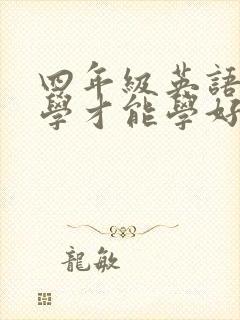 四年級英語
學才能學好
龍敏